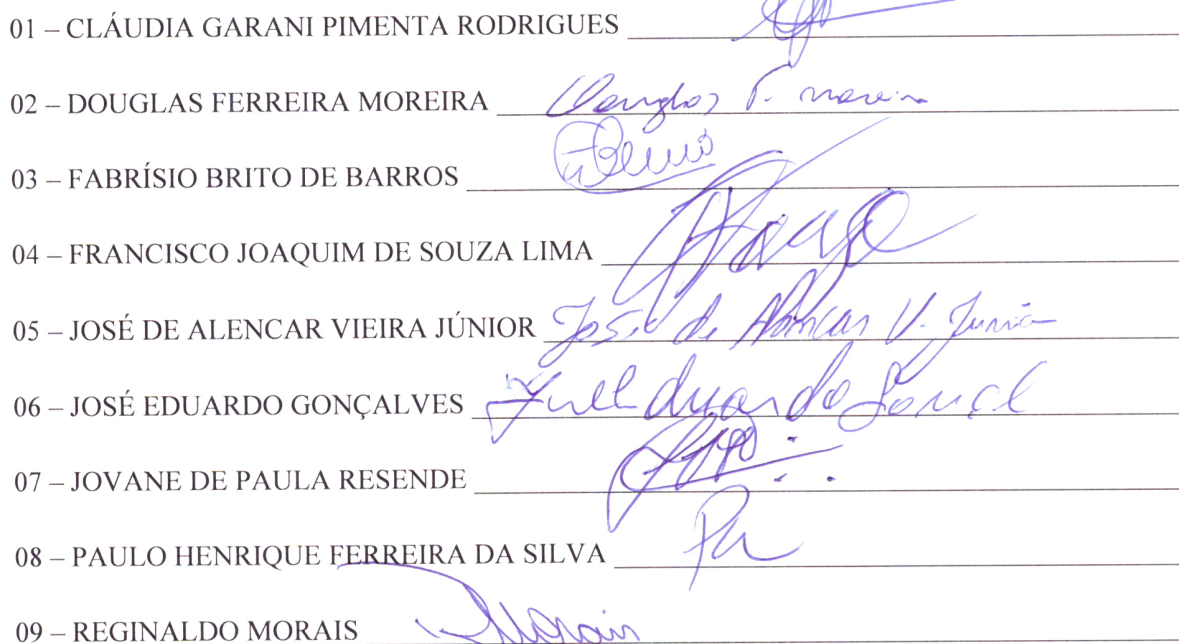 01 – CLÁUDIA GARANI PIMENTA RODRIGUES
02 – DOUGLAS FERREIRA MOREIRA Douglas F. Moreira
03 – FABRÍSIO BRITO DE BARROS
04 – FRANCISCO JOAQUIM DE SOUZA LIMA
05 – JOSÉ DE ALENCAR VIEIRA JÚNIOR José de Alencar V. Junior
06 – JOSÉ EDUARDO GONÇALVES
07 – JOVANE DE PAULA RESENDE
08 – PAULO HENRIQUE FERREIRA DA SILVA
09 – REGINALDO MORAIS